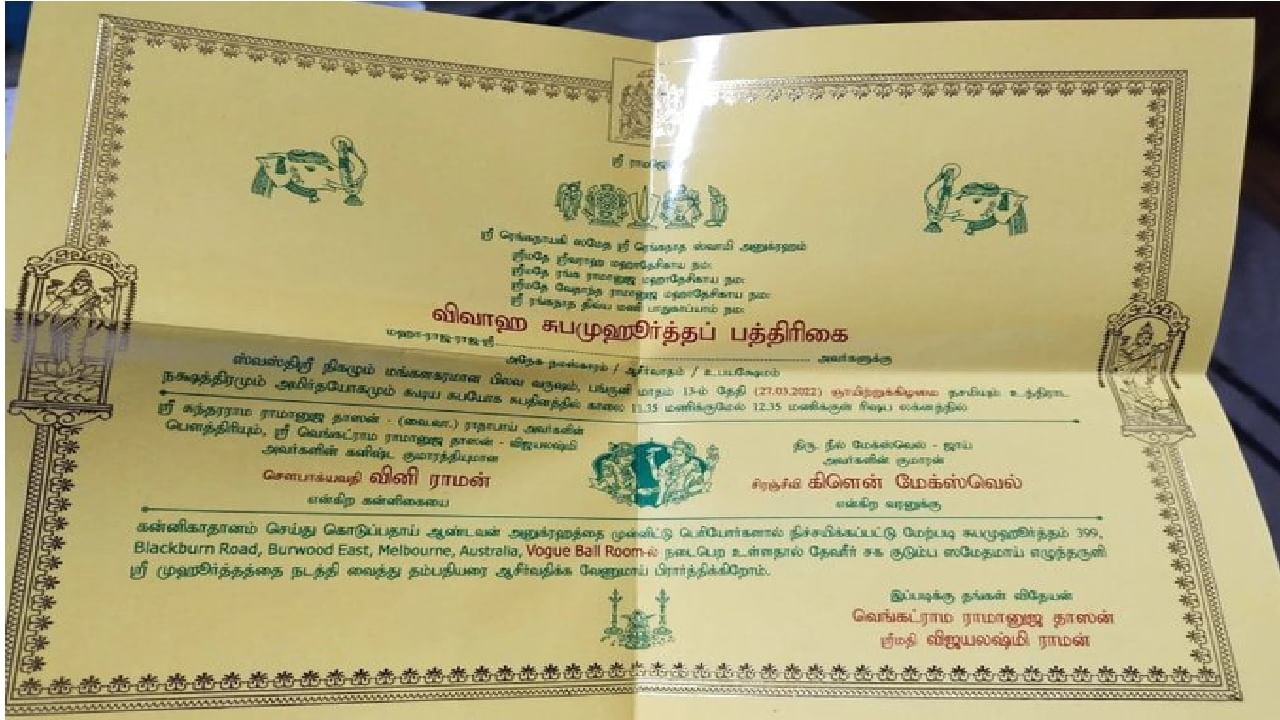 ஸ்ரீ
ஸ்ரீ ரெங்கநாயகி ஸமேத ஸ்ரீ ரெங்கநாத ஸ்வாமி அனுக்ரஹம்
ஸ்ரீமதே ஸ்ரீவராஹ மஹாதேசிகாய நம:
ஸ்ரீமதே ரங்க ராமானுஜ மஹாதேசிகாய நம:
ஸ்ரீமதே வேதாந்த ராமானுஜ மஹாதேசிகாய நம:
ஸ்ரீ ரங்கநாத திவ்ய மணி பாதுகாப்யாம் நம:
விவாஹ சுபமுஹூர்த்தப் பத்திரிகை
மஹா-ராஜ-ராஜ-ஸ்ரீ.......................... அவர்களுக்கு
அநேக நமஸ்காரம் / ஆசீர்வாதம் / உபயக்ஷேமம்
ஸ்வஸ்திஸ்ரீ திகழும் மங்களகரமான பிலவ வருஷம், பங்குனி மாதம் 13-ம் தேதி (27.03.2022) ஞாயிற்றுக்கிழமை தசமியும் உத்திராட
நக்ஷத்திரமும் அமிர்தயோகமும் கூடிய சுபயோக சுபதினத்தில் காலை 11.35 மணிக்குமேல் 12.35 மணிக்குள் ரிஷப லக்னத்தில்
ஸ்ரீ சுந்தரராம ராமானுஜ தாஸன் - (வை.லா.) ராதாபாய் அவர்களின்
பௌத்திரியும், ஸ்ரீ வெங்கட்ராம ராமானுஜ தாஸன் - விஜயலஷ்மி
அவர்களின் கனிஷ்ட குமாரத்தியுமான
சௌபாக்யவதி வினி ராமன்
என்கிற கன்னிகையை
திரு. நீல் மேக்ஸ்வெல் - ஜாய்
அவர்களின் குமாரன்
சிரஞ்சீவி கிளென் மேக்ஸ்வெல்
என்கிற வரனுக்கு
கன்னிகாதானம் செய்து கொடுப்பதாய் ஆண்டவன் அனுக்ரஹத்தை முன்னிட்டு பெரியோர்களால் நிச்சயிக்கப்பட்டு மேற்படி சுபமுஹூர்த்தம் 399,
Blackburn Road, Burwood East, Melbourne, Australia, Vogue Ball Room-ல் நடைபெற உள்ளதால் தேவரீர் சக குடும்ப ஸமேதமாய் எழுந்தருளி
ஸ்ரீ முஹூர்த்தத்தை நடத்தி வைத்து தம்பதியரை ஆசிர்வதிக்க வேணுமாய் பிரார்த்திக்கிறோம்.
இப்படிக்கு தங்கள் விதேயன்
வெங்கட்ராம ராமானுஜ தாஸன்
ஸ்ரீமதி விஜயலஷ்மி ராமன்